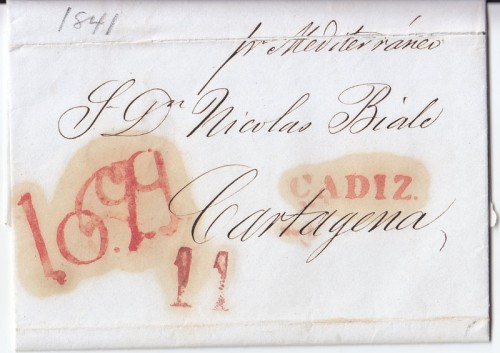 1841
pr Mediterráneo
S. Dn Nicolas Biale
CADIZ.
Cartagena
11